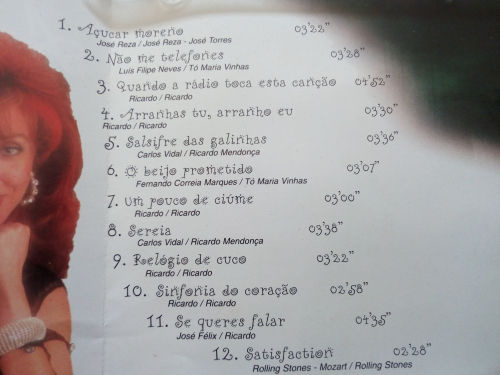 1. Açucar moreno 03'22"
José Reza / José Reza - José Torres
2. Não me telefones 03'28"
Luís Filipe Neves / Tó Maria Vinhas
3. Quando a rádio toca esta canção 04'52"
Ricardo / Ricardo
4. Arranhas tu, arranho eu 03'30"
Ricardo / Ricardo
5. Salsifre das galinhas 03'36"
Carlos Vidal / Ricardo Mendonça
6. O beijo prometido 03'07"
Fernando Correia Marques / Tó Maria Vinhas
7. Um pouco de ciúme 03'00"
Ricardo / Ricardo
8. Sereia 03'38"
Carlos Vidal / Ricardo Mendonça
9. Relógio de cuco 03'22"
Ricardo / Ricardo
10. Sinfonia do coração 02'58"
Ricardo / Ricardo
11. Se queres falar 04'35"
José Félix / Ricardo
12. Satisfaction 02'28"
Rolling Stones - Mozart / Rolling Stones